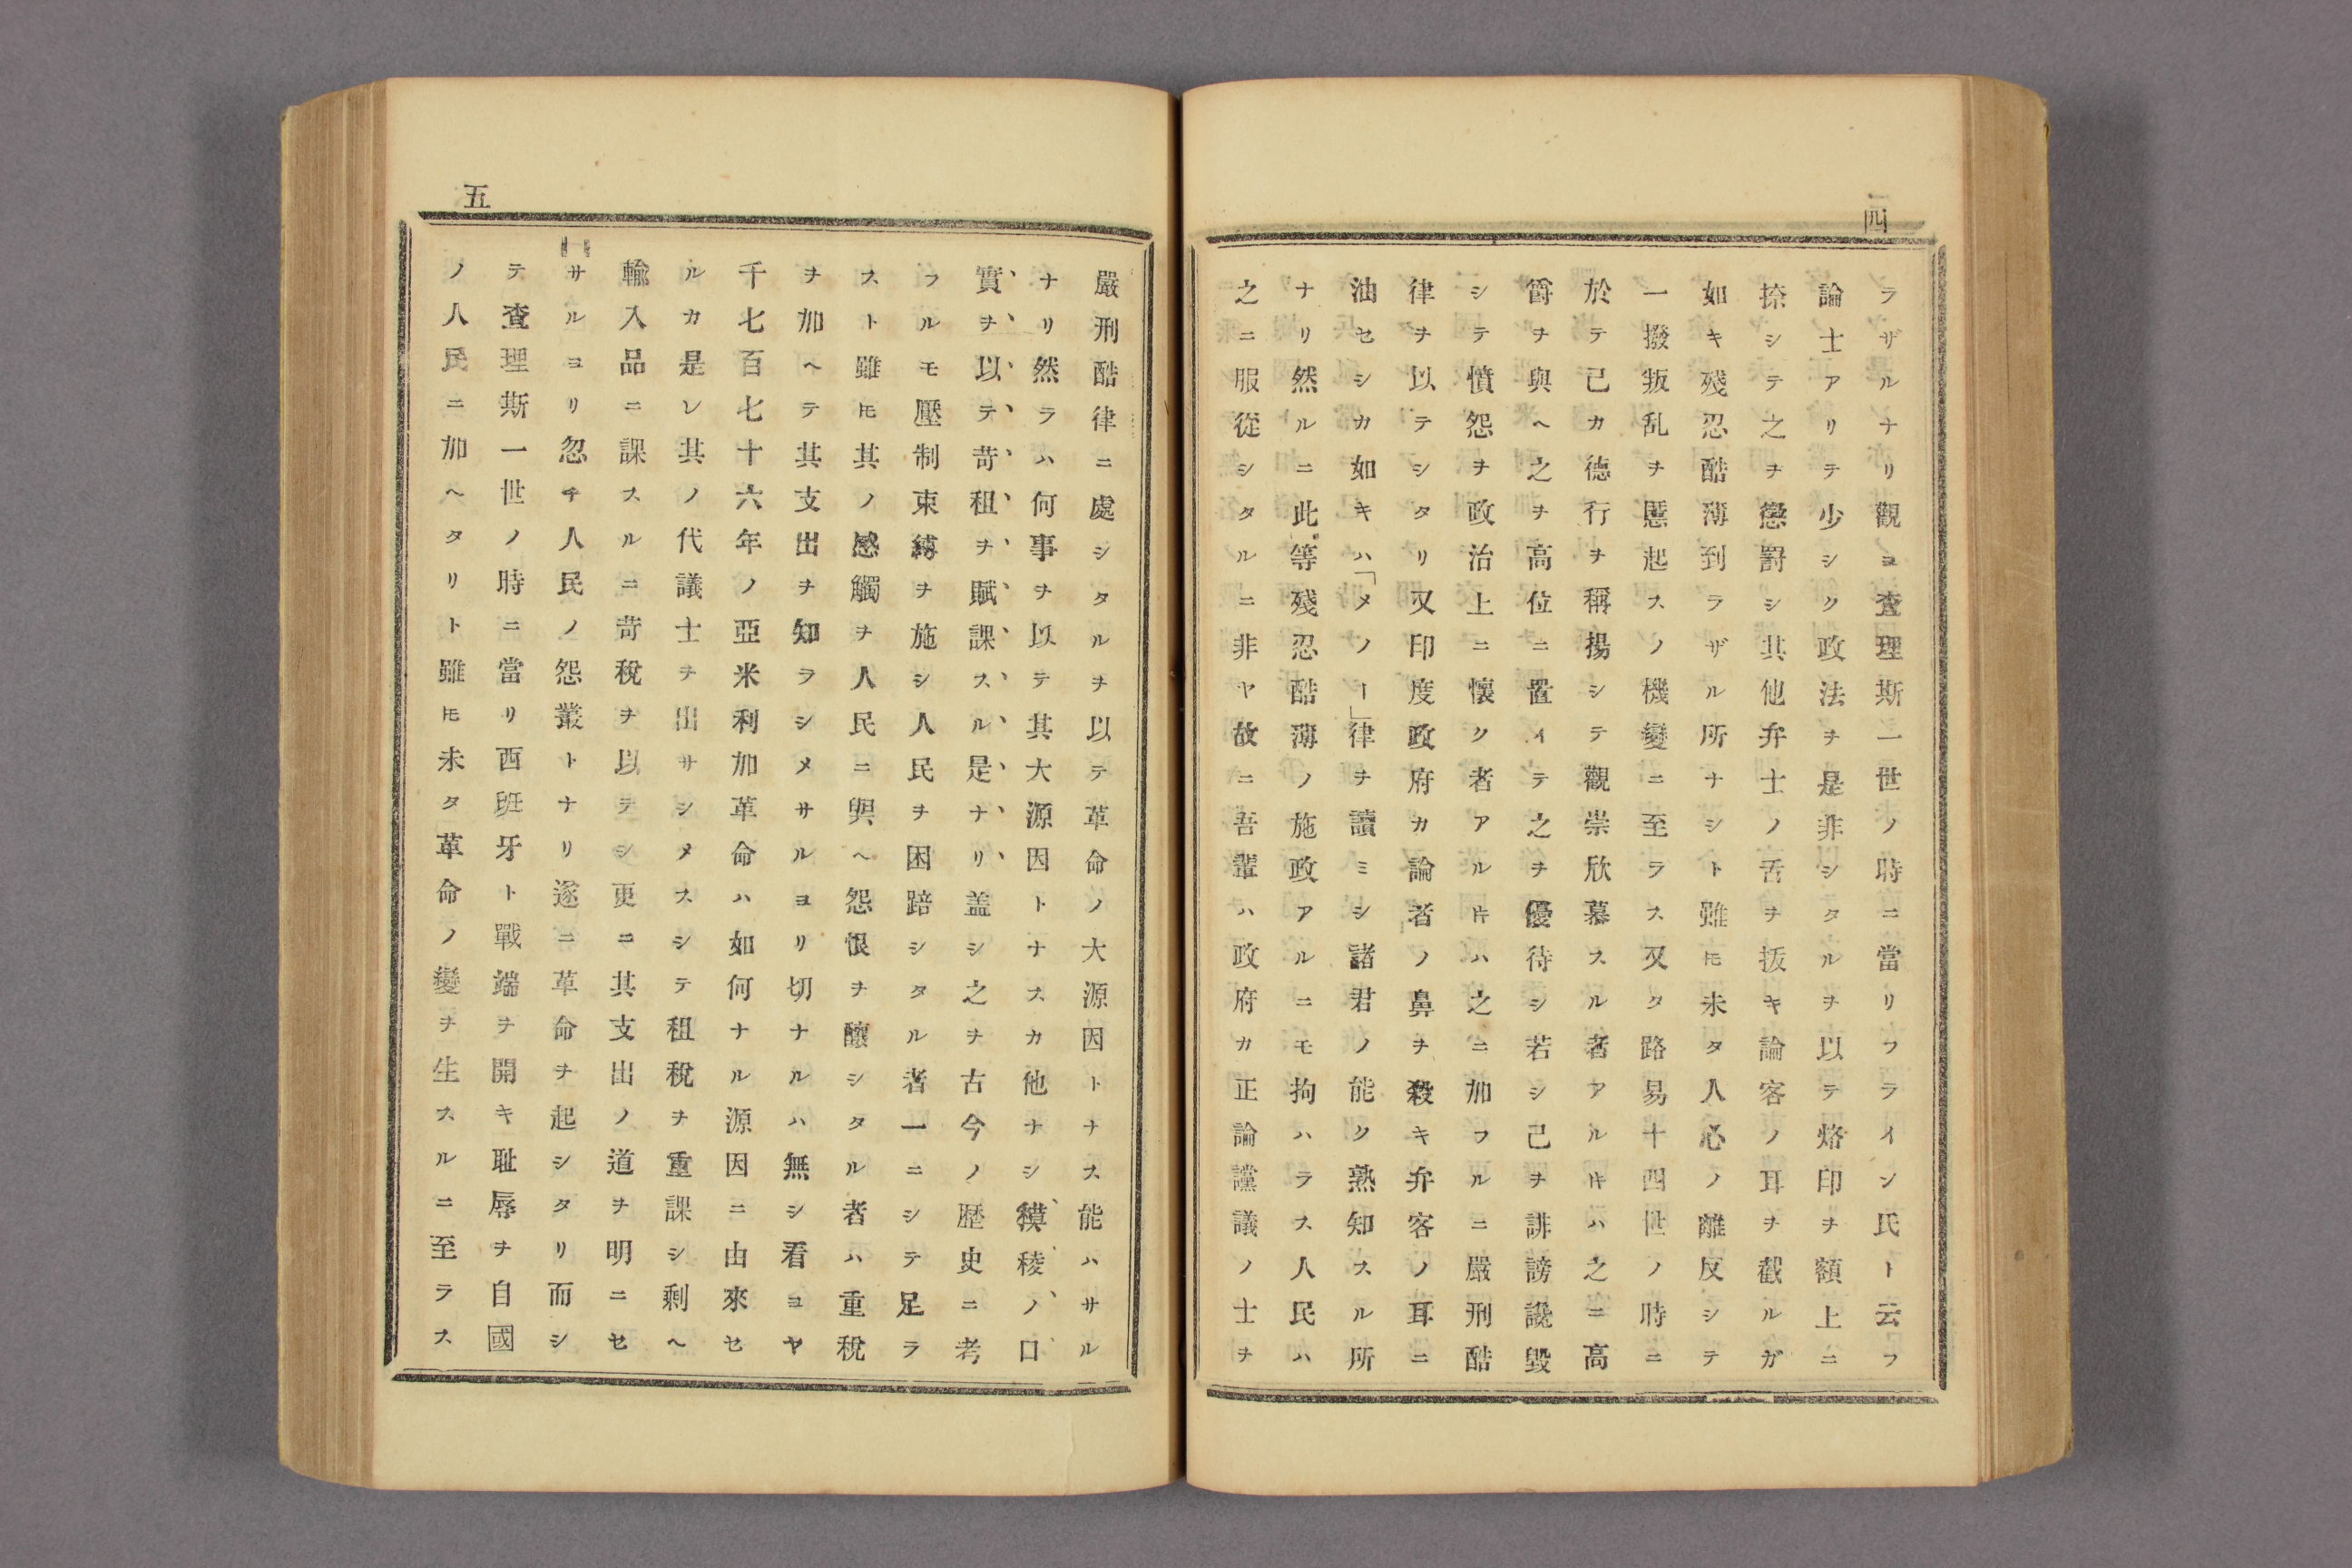 四
ラザルナリ觀ヨ査理斯一世ノ時ニ當リフラインン氏ト云フ
論士アリテ少シク政法ヲ是非シタルヲ以テ烙印ヲ額上ニ
捺シテ之ヲ懲罸シ其他弁士ノ舌ヲ抜キ論客ノ耳ヲ截ルガ
如キ殘忍酷薄到ラザル所ナシト雖𪜈未タ人心ノ離反シテ
一撥叛乱ヲ慝起スノ機變ニ至ラス又タ路易十四世ノ時ニ
於テ己カ德行ヲ稱揚シテ觀崇欣慕スル者アル𪜈ハ之ニ高
爵ヲ與ヘ之ヲ高位ニ置イテ之ヲ優待シ若シ己ヲ誹謗讒毀
シテ憤怨ヲ政治上ニ懷ク者アル𪜈ハ之ニ加フルニ嚴刑酷
律ヲ以テシタリ又印度政府カ論者ノ鼻ヲ殺キ弁客ノ耳ニ
油セシカ如キハ「メノー」律ヲ讀ミシ諸君ノ能ク熟知スル所
ナリ然ルニ此等殘忍酷薄ノ施政アルニモ拘ハラス人民ハ
之ニ服從シタルニ非ヤ故ニ吾輩ハ政府カ正論讜議ノ士ヲ
五
嚴刑酷律ニ處シタルヲ以テ革命ノ大源因トナス能ハサル
ナリ然ラハ何事ヲ以テ其大源因トナスカ他ナシ糢稜ノ口
實ヲ以テ苛租ヲ賦課スル是ナリ盖シ之ヲ古今ノ歷史ニ考
フルモ壓制束縛ヲ施シ人民ヲ困踣シタル者一ニシテ足ラ
スト雖𪜈其ノ感觸ヲ人民ニ與ヘ怨恨ヲ釀シタル者ハ重稅
ヲ加ヘテ其支出ヲ知ラシメサルヨリ切ナルハ無シ看ヨヤ
千七百七十六年ノ亞米利加革命ハ如何ナル源因ニ由來セ
ルカ是レ其ノ代議士ヲ出サシメスシテ租稅ヲ重課シ剩ヘ
輸入品ニ課スルニ苛稅ヲ以テシ更ニ其支出ノ道ヲ明ニセ
サルヨリ忽チ人民ノ怨叢トナリ遂ニ革命ヲ起シタリ而シ
テ査理斯一世ノ時ニ當リ西班牙ト戰端ヲ開キ耻辱ヲ自國
ノ人民ニ加ヘタリト雖𪜈未タ革命ノ變ヲ生スルニ至ラス